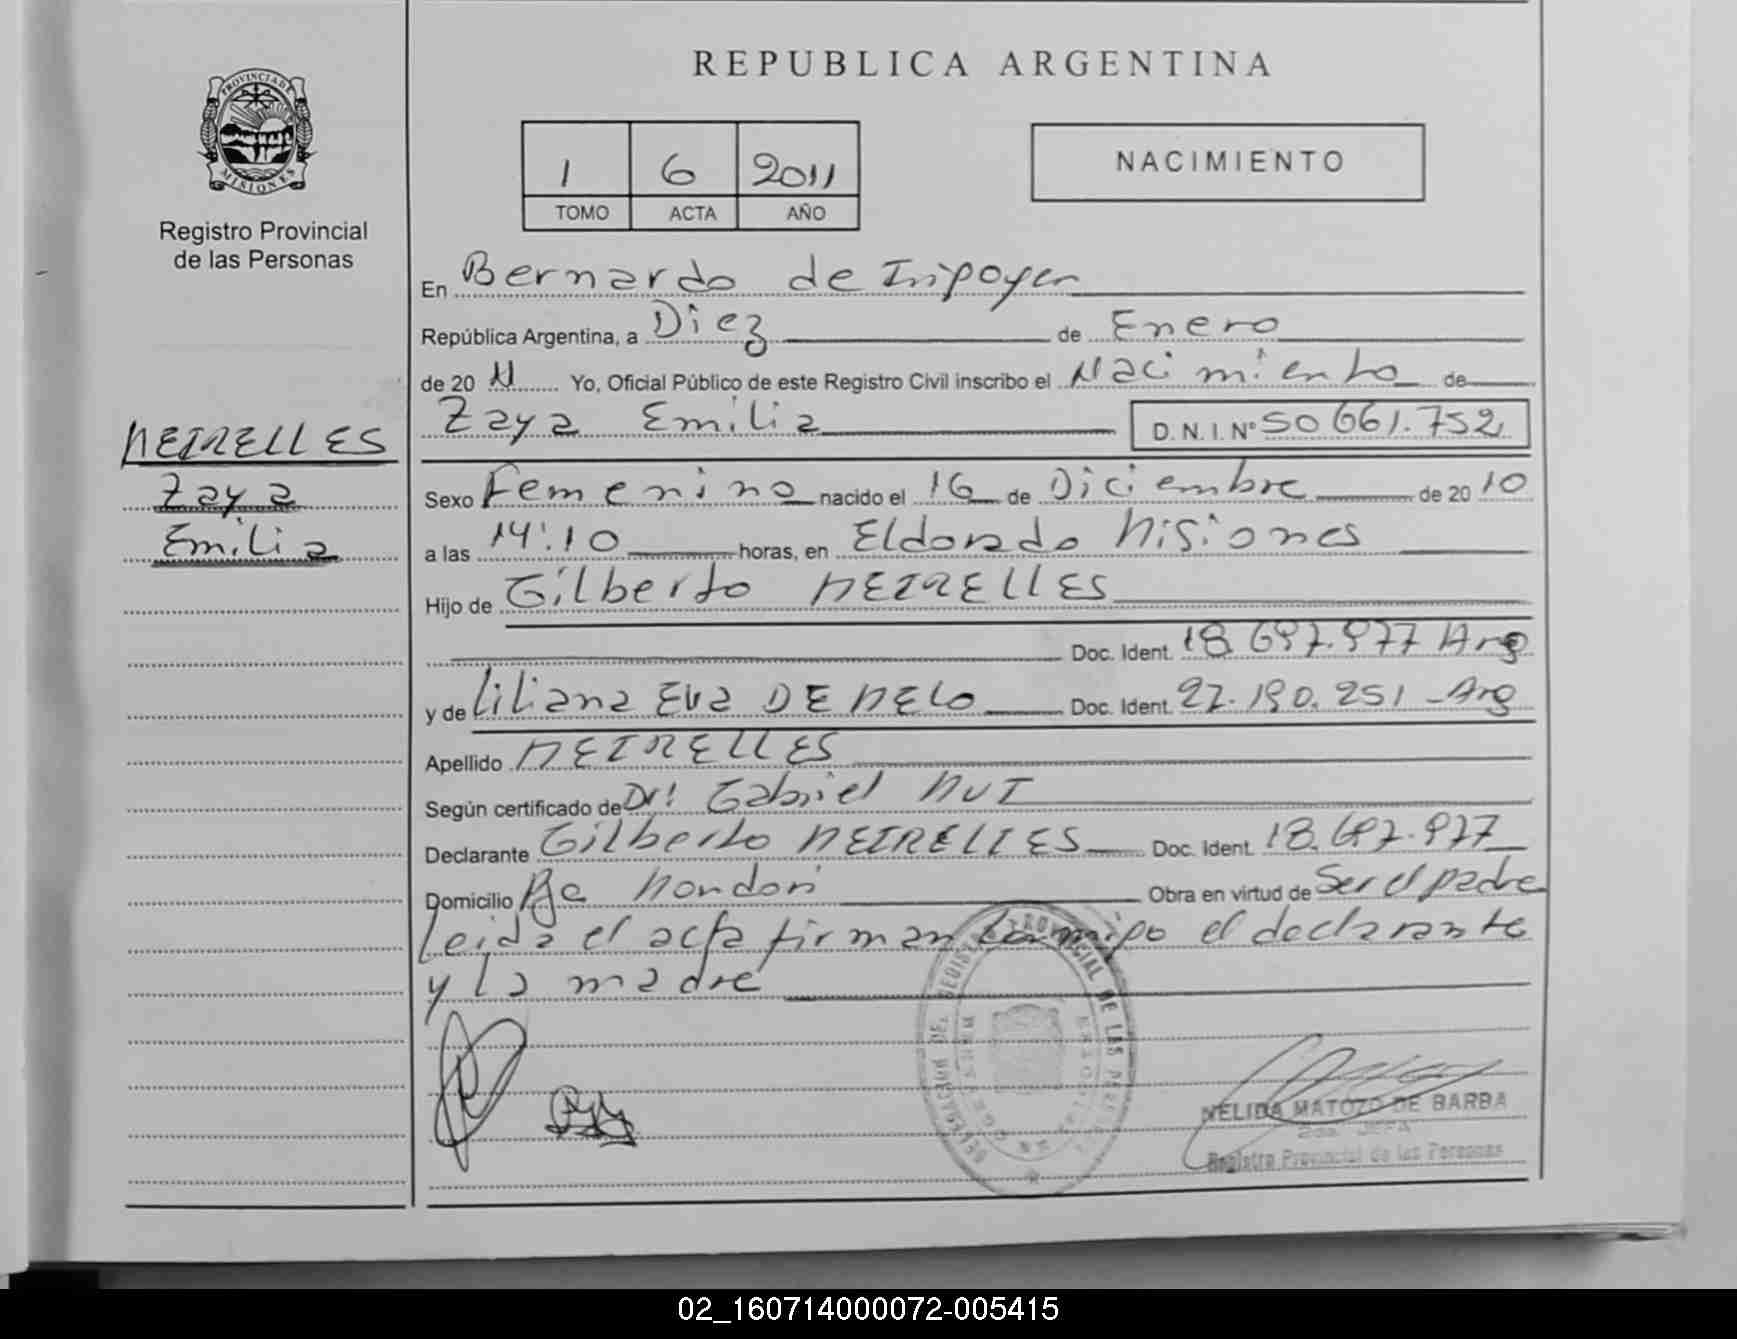 REPUBLICA ARGENTINA
PROVINCIA DE MISIONES
Registro Provincial
de las Personas
1 6 2011
TOMO ACTA AÑO
NACIMIENTO
En Bernardo de Iripoyen
República Argentina, a Diez de Enero
de 20 11 Yo, Oficial Público de este Registro Civil inscribo el Nacimiento de
Zaya Emilia D.N.I.Nº 50.661.752
MEIRELLES
Zaya
Emilia
Sexo Femenino nacido el 16 de Diciembre de 20 10
a las 14:10 horas, en Eldorado Misiones
Hijo de Gilberto MEIRELLES
Doc. Ident. 18.697.977 Arg
y de Liliana Eva DE MELO Doc. Ident. 22.190.251 - Arg
Apellido MEIRELLES
Según certificado de Dr: Gabriel
Declarante Gilberto MEIRELLES Doc. Ident. 18.697.977
Domicilio Mondori Obra en virtud de Ser el padre
Leida el acta firman conmigo el declarante
y la madre
NELIDA MATOZO DE BARBA
JEFA
Registro Provincial de las Personas
02_160714000072-005415